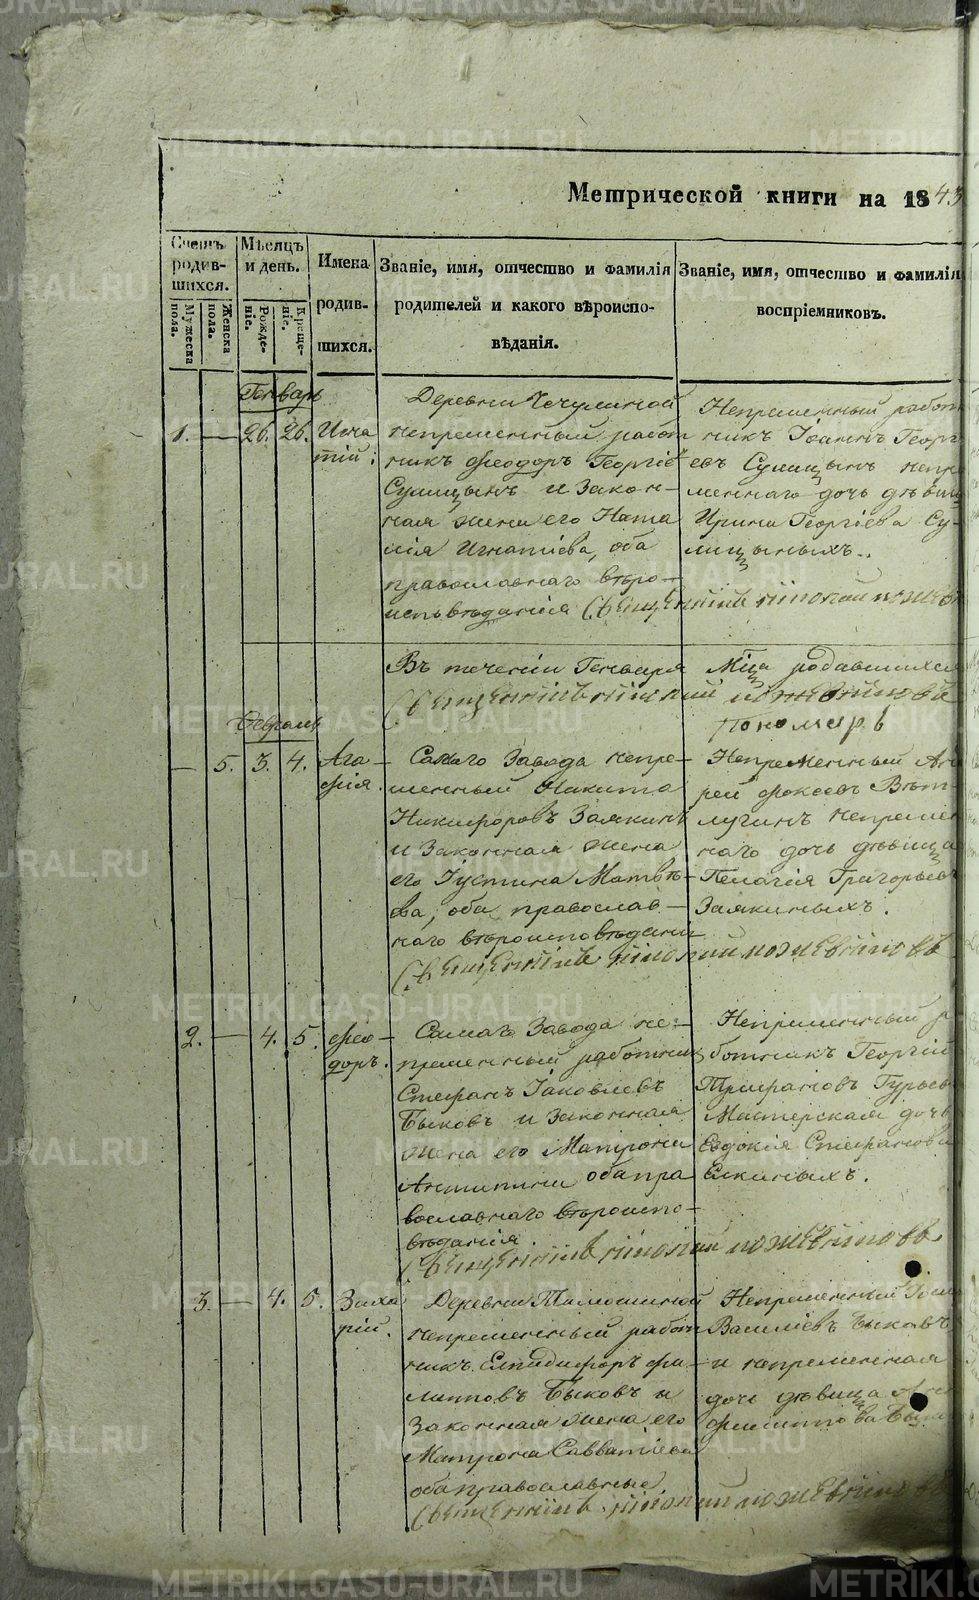 Метрической книги на 1843
Счетъ родив-шихся.
Мужеска пола.
Женска пола.
Мѣсяцъ и день.
Рожде-ніе.
Креще-ніе.
Имена родив-шихся.
Званіе, имя, отчество и фамилія
родителей и какого вѣроиспо-
вѣданія.
Званіе, имя, отчество и фамилія
воспріемниковъ.
Генварь
1. — 26. 26. Игна
тій.
Деревни
непременный работ
никъ Феодоръ Георгіе
Сулицынъ и Закон-
ная жена его Ната
лія Игнатіева, оба
православнаго вѣро-
исповѣданія
Непременный работ
никъ Іоаннъ Георгі
евъ Сулицынъ непре
меннаго дочь дѣвица
Ирина Георгіева Су-
лицыныхъ.
Въ теченіи Генваря
Мца родившихся
Пономарь
Февраль
— 5. 3. 4. Ага
фія.
Самаго Завода непре-
менный Никита
Никифоровъ Заякинъ
и Законная жена
его Іустина Матвѣ
ева, оба православ-
наго вѣроисповѣдани
Непременный Анд
рей Фокеевъ Вѣт-
лугинъ непремен
наго дочь дѣвица
Пелагія Григорьев
Заякиныхъ.
2. — 4. 5. Фео-
доръ.
Самаго Завода не-
пременный работник
Стефанъ Іаковлевъ
Быковъ и Законная
жена его Матрона
Антипина оба пра
вославнаго вѣроиспо-
вѣданія.
Непременный р
ботникъ Георгій
Трифановъ Гурьев
Мастерская дочь
Евдокія Стефанова
Елкиныхъ.
3. — 4. 5. Заха
рій.
Деревни Тимошиной
непременный работ
никъ Елпидифоръ Фи-
липповъ Быковъ и
Законная жена его
Матрона Савватіева
оба православные
Непременный
Василіевъ Быковъ
и непременная
дочь дѣвица
Филиппова
METRIKI.GASO-URAL.RU